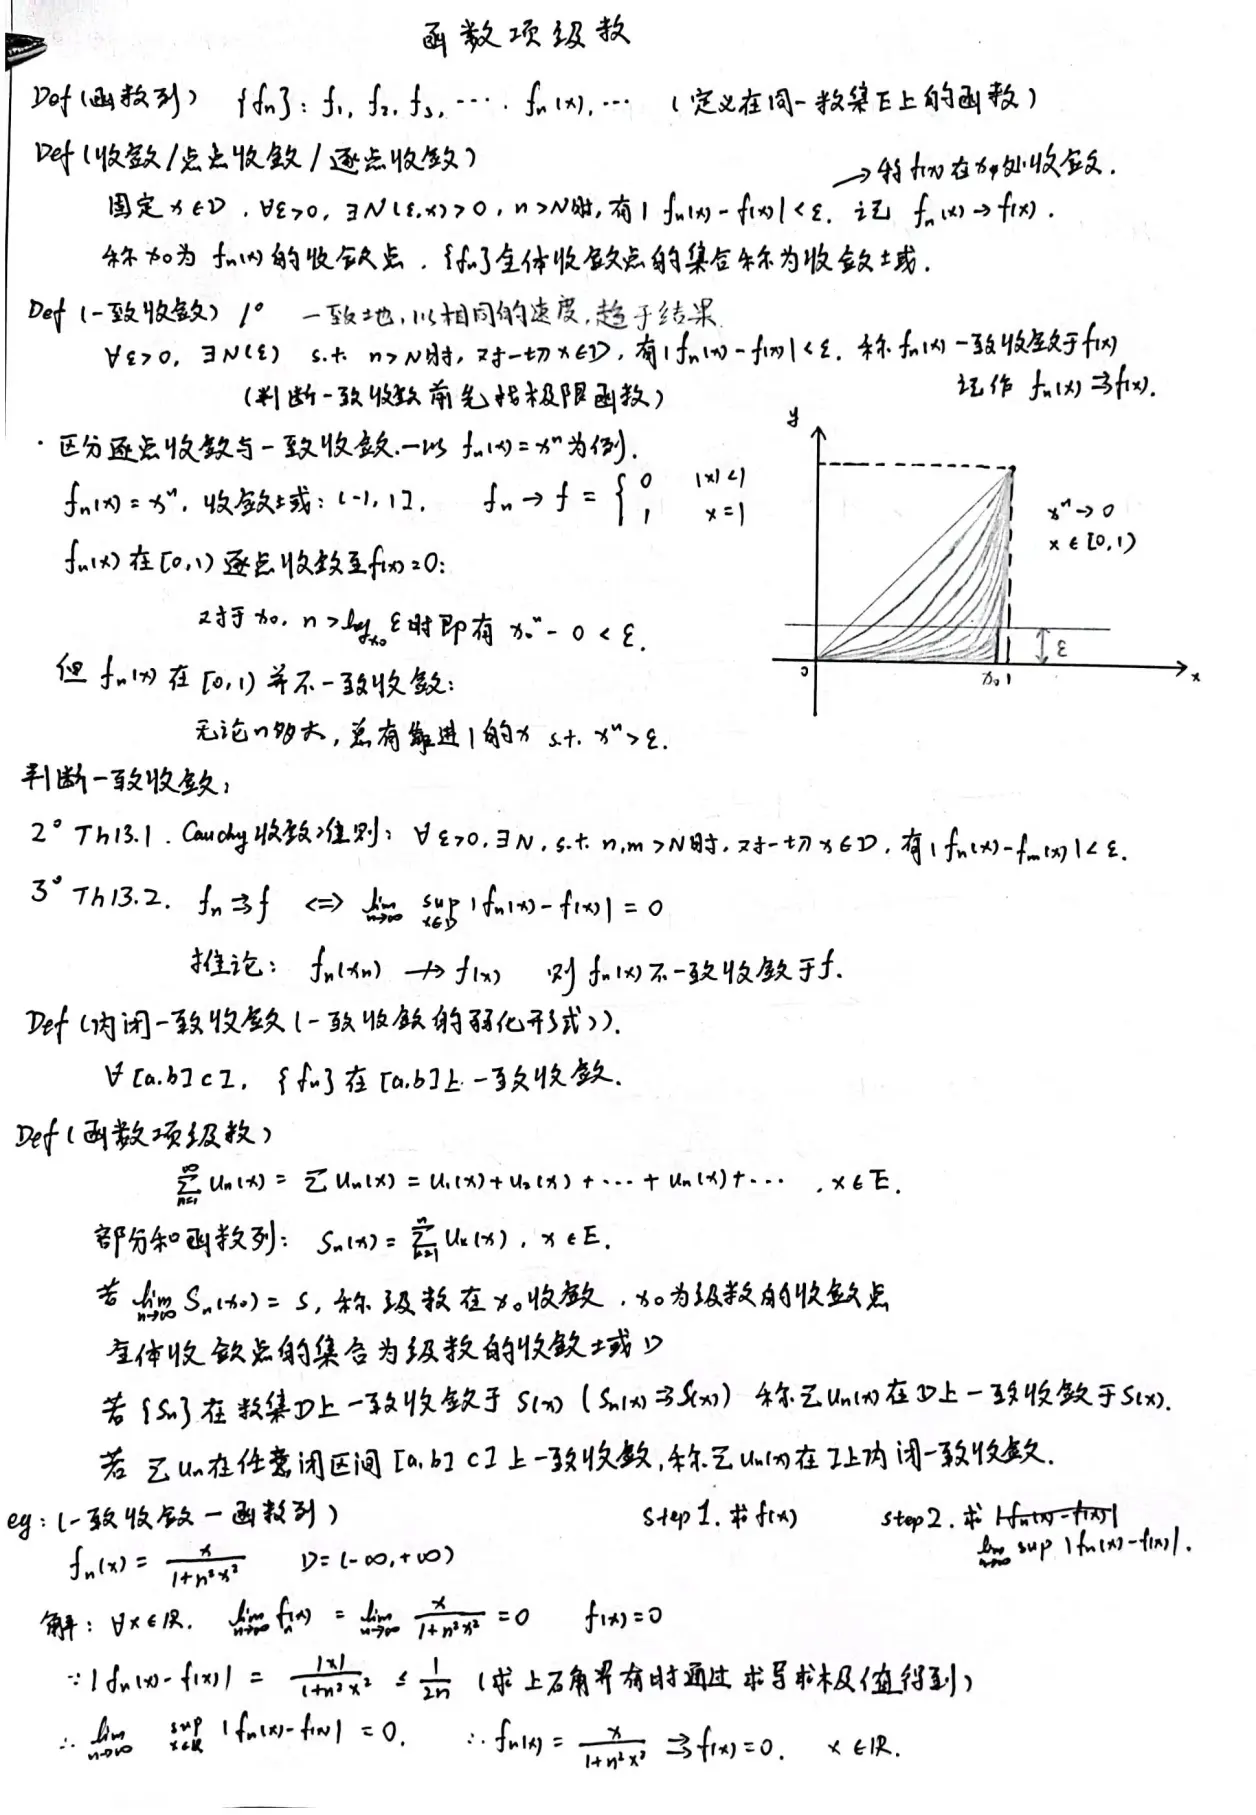 函数项级数
Def (函数列) {fn}: f₁, f₂, f₃, ···· fn(x), ··· (定义在同一数集E上的函数)
Def (收敛/点点收敛/逐点收敛)
→ 称f(x)在x₀处收敛.
固定 x∈D, ∀ε>0, ∃N(ε,x)>0, n>N时, 有|fn(x)-f(x)|<ε. 记 fn(x)→f(x).
称x₀为fn(x)的收敛点. {fn}全体收敛点的集合称为收敛域.
Def (一致收敛) 1° 一致地, 以相同的速度, 趋于结果
∀ε>0, ∃N(ε) s.t. n>N时, 对一切x∈D, 有|fn(x)-f(x)|<ε. 称fn(x)一致收敛于f(x)
(判断一致收敛前先找极限函数) 记作 fn(x)⇉f(x).
· 区分逐点收敛与一致收敛.一以 fn(x)=xⁿ为例.
fn(x)=xⁿ, 收敛域: (-1, 1]. fn→f = { 0 |x|<1
1 x=1
fn(x)在[0,1)逐点收敛至f(x)=0:
对于x₀, n>log_x₀ ε时即有 x₀ⁿ-0<ε.
但 fn(x)在[0,1)并不一致收敛:
无论n多大, 总有靠进1的x s.t. xⁿ>ε.
y
xⁿ→0
x∈[0,1)
ε
0 x₀ 1 x
判断一致收敛:
2° Th13.1. Cauchy收敛准则: ∀ε>0, ∃N, s.t. n,m>N时, 对一切x∈D, 有|fn(x)-fm(x)|<ε.
3° Th13.2. fn⇉f <=> lim n→∞ sup x∈D |fn(x)-f(x)|=0
推论: fn(xn) ↛ f(x) 则 fn(x)不一致收敛于f.
Def (内闭一致收敛(一致收敛的弱化形式)).
∀[a,b]⊂I, {fn}在[a,b]上一致收敛.
Def (函数项级数)
∑ n=1 ∞ un(x) = ∑un(x) = u₁(x)+u₂(x)+···+un(x)+··· , x∈E.
部分和函数列: Sn(x)= ∑ k=1 n uk(x), x∈E.
若 lim n→∞ Sn(x₀)=S, 称级数在x₀收敛, x₀为级数的收敛点
全体收敛点的集合为级数的收敛域D
若{Sn}在数集D上一致收敛于S(x) (Sn(x)⇉S(x)) 称∑un(x)在D上一致收敛于S(x).
若∑un在任意闭区间[a,b]⊂I上一致收敛, 称∑un(x)在I上内闭一致收敛.
eg: (一致收敛—函数列) step1. 求f(x) step2. 求 |fn(x)-f(x)|
lim n→∞ sup |fn(x)-f(x)|.
fn(x)= x/(1+n²x²) D=(-∞,+∞)
解: ∀x∈R. lim n→∞ fn(x) = lim n→∞ x/(1+n²x²) =0 f(x)=0
∵ |fn(x)-f(x)| = |x|/(1+n²x²) ≤ 1/2n (求上确界有时通过求导求极值得到)
∴ lim n→∞ sup x∈R |fn(x)-f(x)| =0. ∴ fn(x)= x/(1+n²x²) ⇉f(x)=0. x∈R.